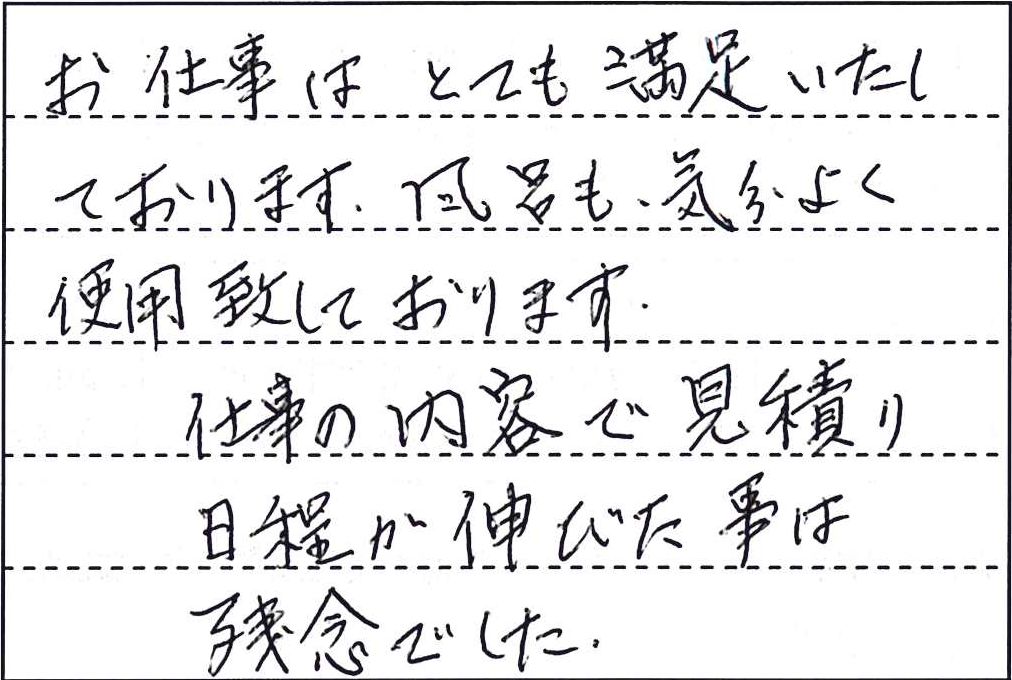 お仕事はとても満足いたし
ております。風呂も、気分よく
使用致しております。
仕事の内容で見積り
日程が伸びた事は
残念でした。